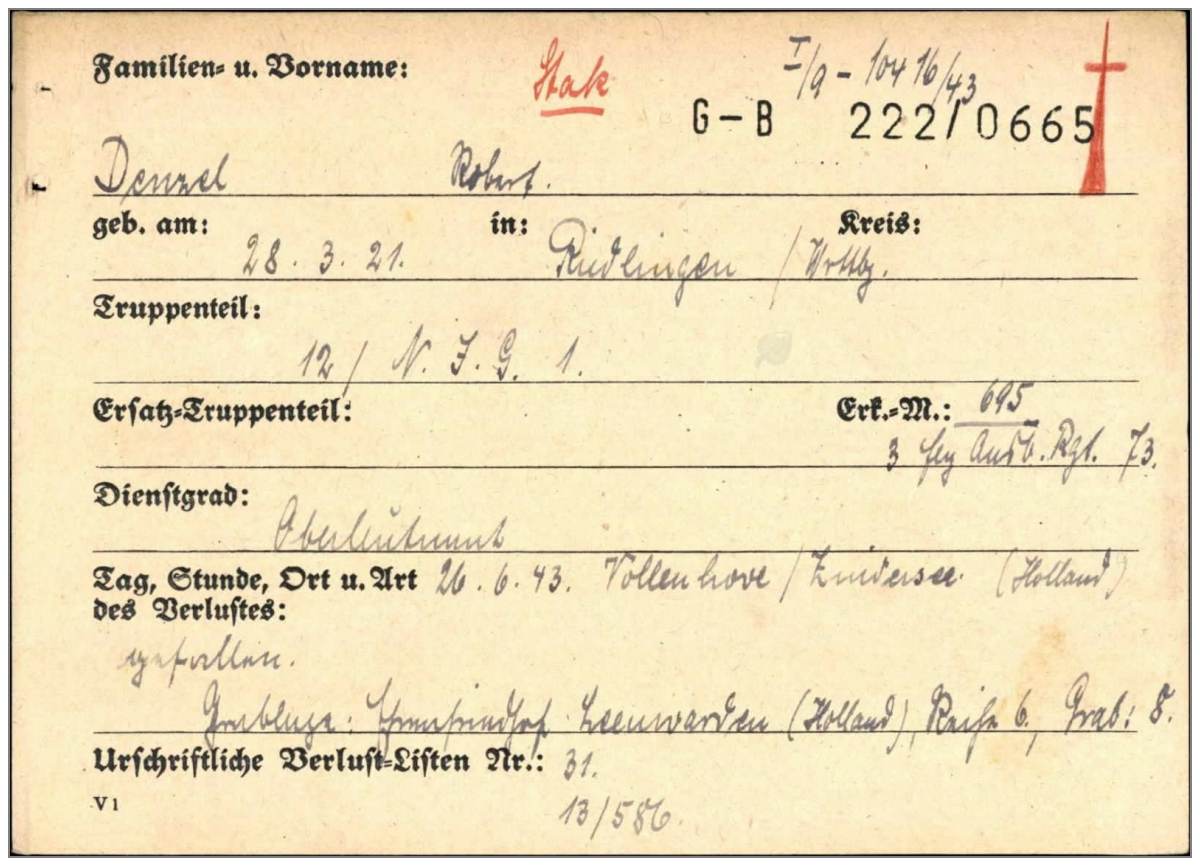 Familien- u. Vorname: Stak I/9 - 104 16/43
G-B 222/0665
Denzel Robert.
geb. am: in: Kreis:
28. 3. 21. Riedlingen / Wrttbg.
Truppenteil:
12/ N. J. G. 1.
Ersatz-Truppenteil: Erk.-M.: 695
3 flg Ausb. Rgt. 73.
Dienstgrad:
Oberleutnant
Tag, Stunde, Ort u. Art 26. 6. 43. Vollenhove / Zuidersee. (Holland)
des Verlustes:
gefallen.
Grablage: Ehrenfriedhof Leenwarden (Holland), Reihe 6, Grab: 8.
Urschriftliche Verlust-Listen Nr.: 31.
V1 13/586.